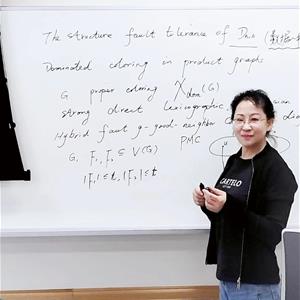 The structure fault tolerance of Dn,k (数据
Dominated coloring in product graphs
G proper coloring χdom(G)
strong direct lexicographic
Hybrid fault g-good-neighbor
PMC
G, F₁, F₂ ⊆ V(G)
|F₁| ≤ t, |F₂| ≤ t
CARTELO